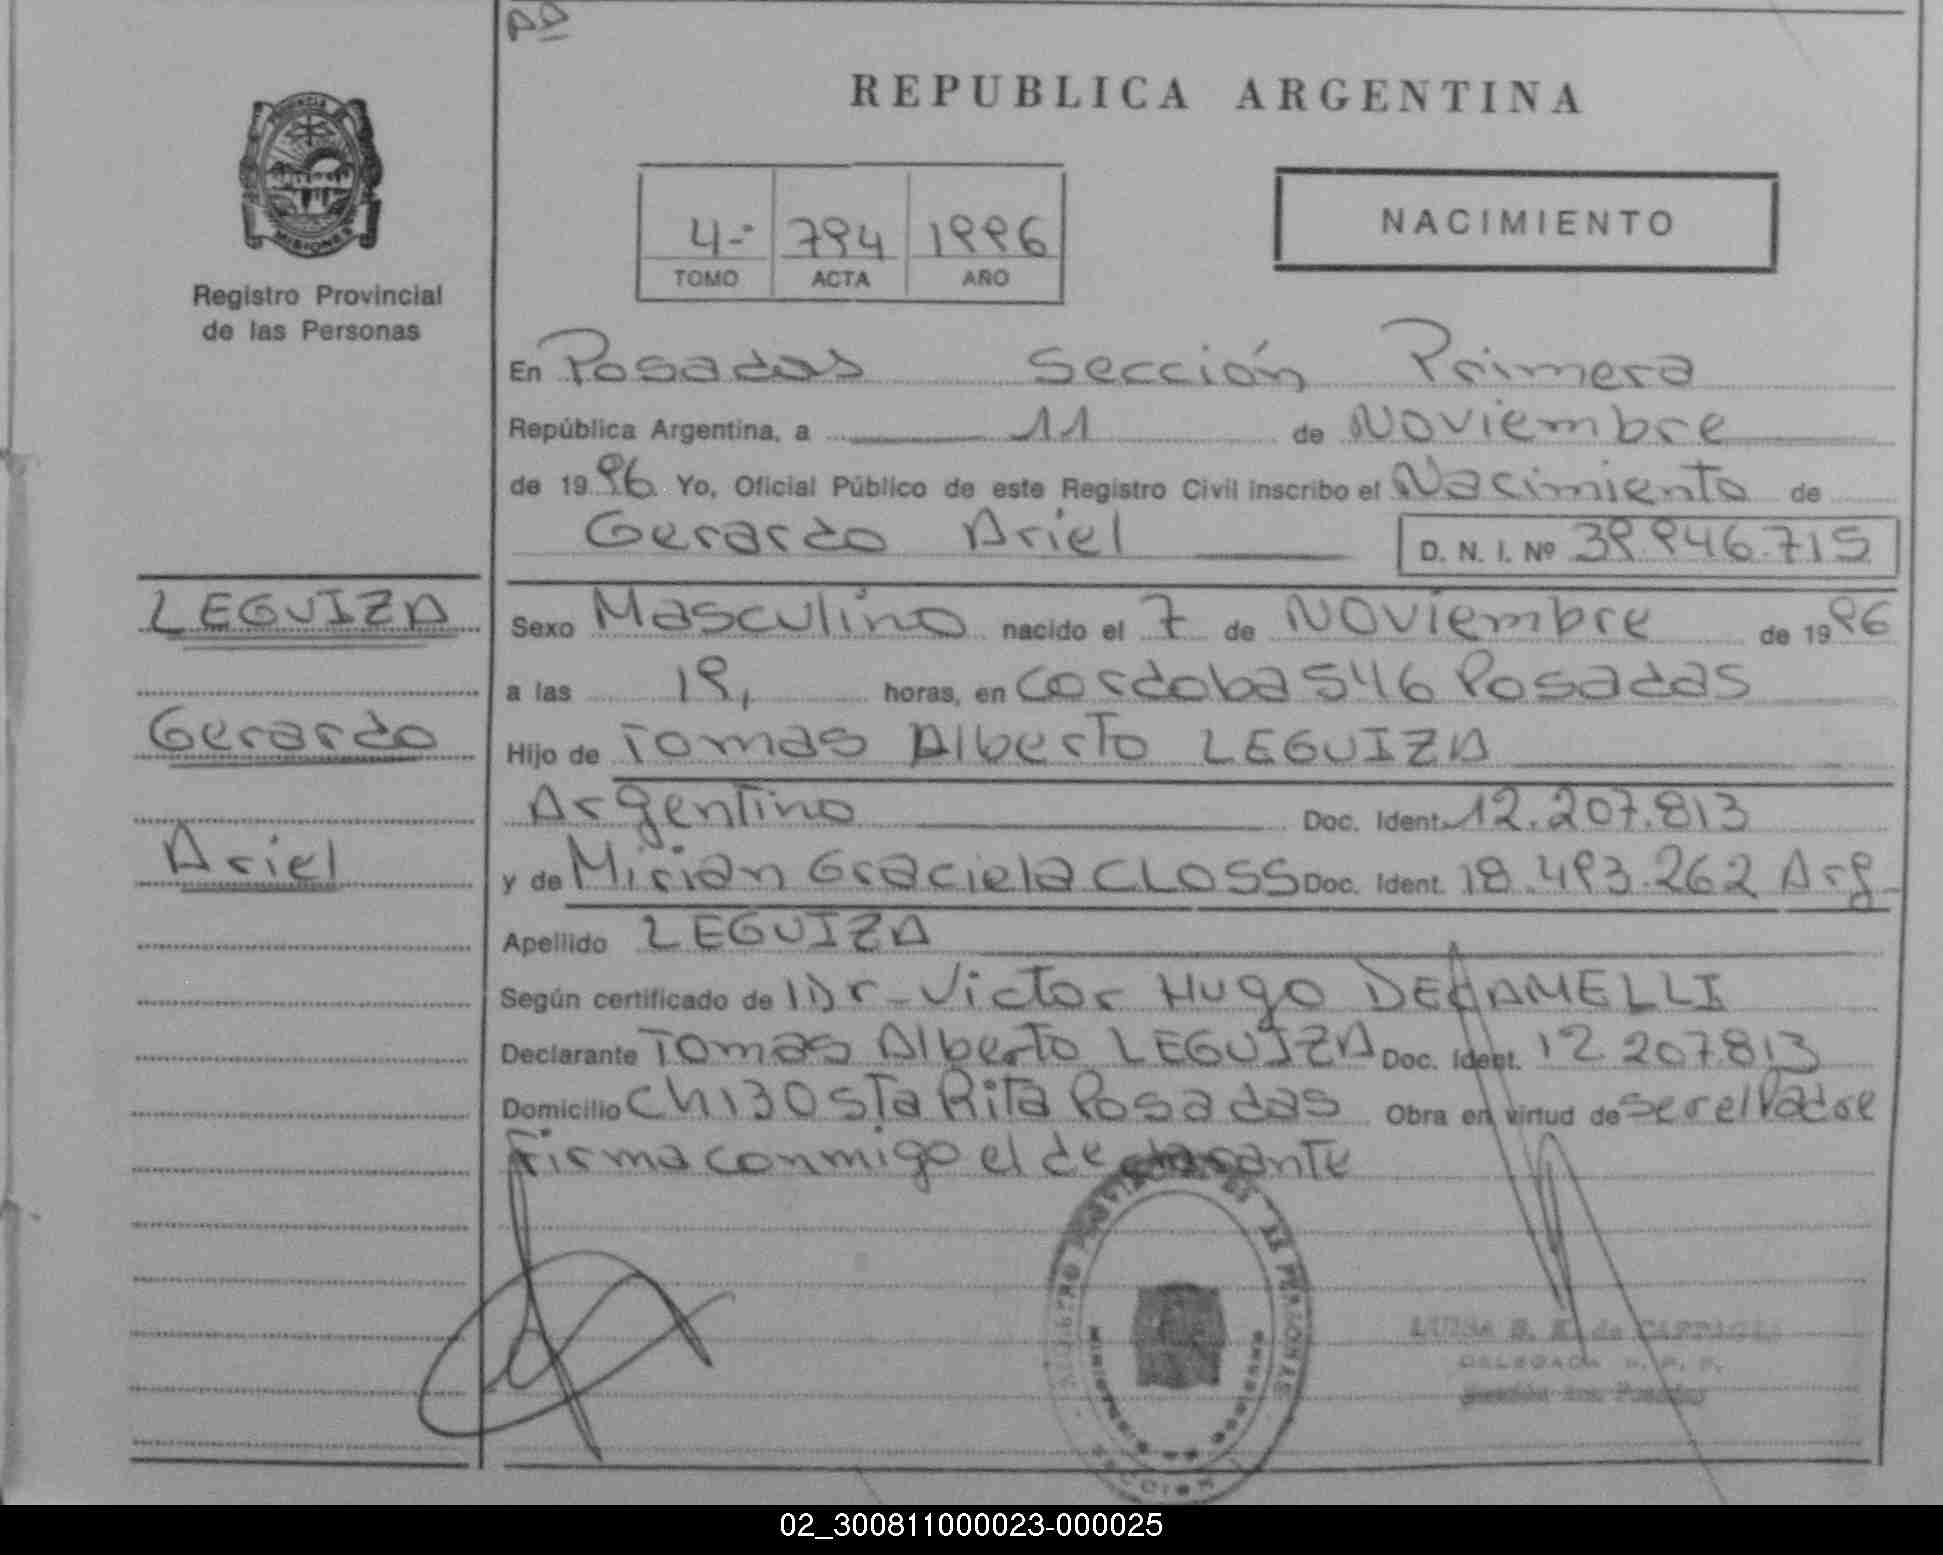 REPUBLICA ARGENTINA
MISIONES
Registro Provincial
de las Personas
4-º 794 1996
TOMO ACTA AÑO
NACIMIENTO
En Posadas Sección Primera
República Argentina, a 11 de Noviembre
de 1996. Yo, Oficial Público de este Registro Civil inscribo el Nacimiento de
Gerardo Ariel D. N. I. Nº 39.946.715
LEGUIZA
Gerardo
Ariel
Sexo Masculino nacido el 7 de Noviembre de 1996
a las 19, horas, en Cordoba 546 Posadas
Hijo de Tomas Alberto LEGUIZA
Argentino Doc. Ident. 12.207.813
y de Mirian Graciela CLOSS Doc. Ident. 18.493.262 Arg
Apellido LEGUIZA
Según certificado de Dr-Victor Hugo
Declarante Tomas Alberto LEGUIZA Doc. Ident. 12.207.813
Domicilio Ch 130 Sta Rita Posadas Obra en virtud de ser el Padre
Firma conmigo el declarante
LUISA
DELEGADA R. P. P.
02_300811000023-000025